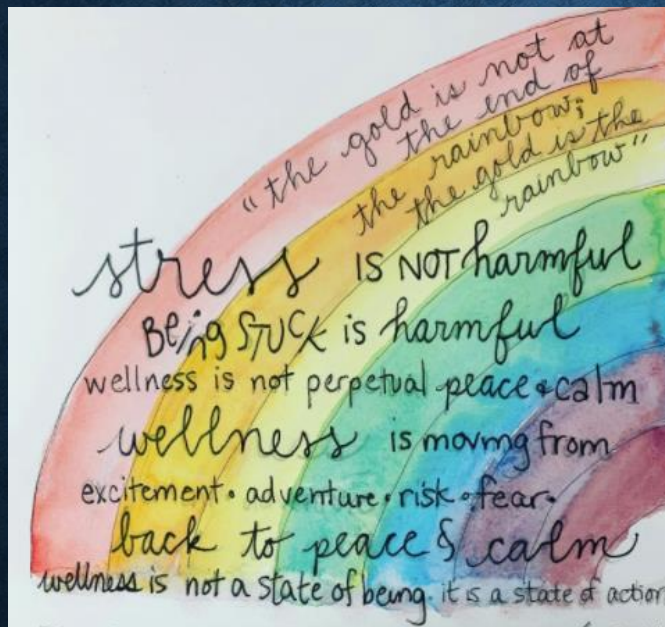 "the gold is not at
the end of
the rainbow;
the gold is the
rainbow"
stress IS NOT harmful
Being STUCK is harmful
wellness is not perpetual peace & calm
wellness is moving from
excitement • adventure • risk • fear •
back to peace & calm
wellness is not a state of being. it is a state of action